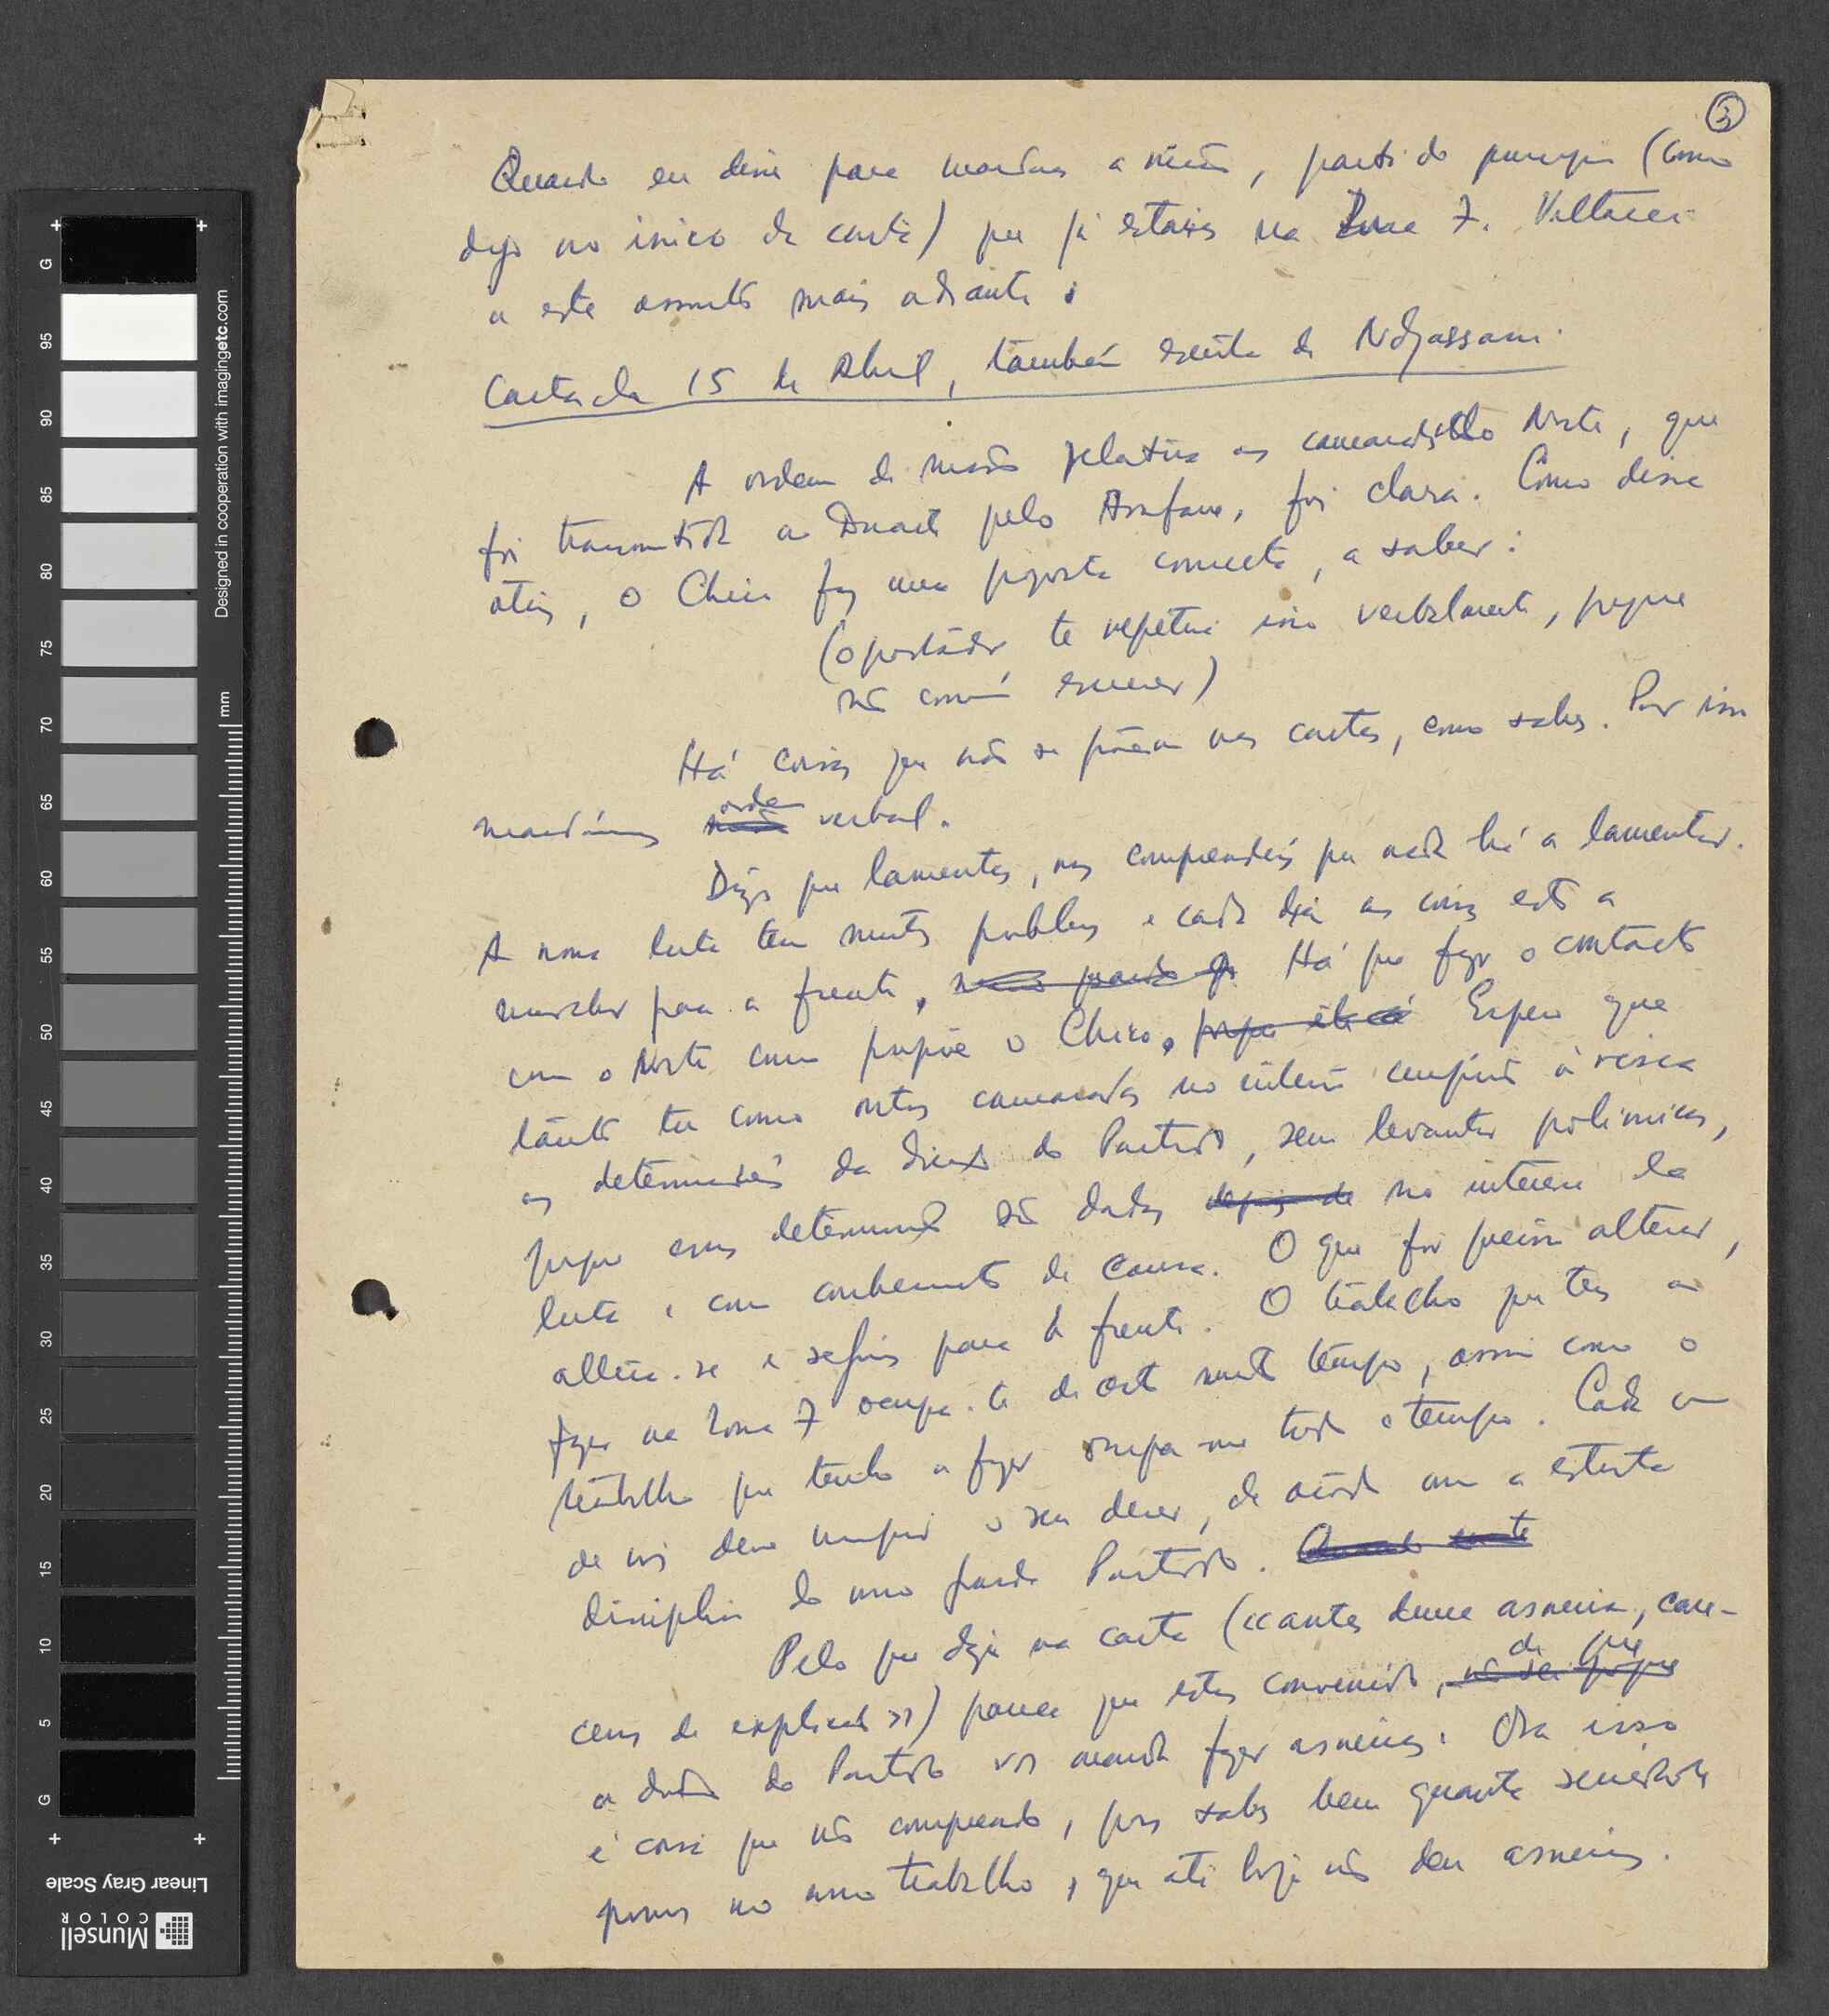 3
Quando eu disse para mandar a missão, parti do princípio (como
digo no início da carta) que já estavas na Zona 7. Voltarei
a este assunto mais adiante.
Carta de 15 de Abril, também escrita de Ndjassani.
A ordem de missão relativa ao camarada do Norte, que
foi transmitida ao Duarte pelo, foi clara. Como disse
atrás, o Chico fez uma proposta concreta, a saber:
(o portador te repetirá isso verbalmente, porque
não convém escrever)
Há coisas que não se põem nas cartas, como sabes. Por isso
mandámos ordem verbal.
Dizes que lamentas, mas compreendes que nada há a lamentar.
A nossa luta tem muitos problemas e cada dia as coisas estão a
marchar para a frente. Há que fazer o contacto
com o Norte como propõe o Chico. Espero que
tanto tu como outros camaradas no interior cumpram à risca
as determinações da direcção do Partido, sem levantar polémicas,
porque essas determinações são dadas no interesse da
luta e com conhecimento de causa. O que for preciso alterar,
altera-se e segue para a frente. O trabalho que tens a
fazer na Zona 7 ocupa-te de certo muito tempo, assim como o
trabalho que tenho a fazer ocupa-me todo o tempo. Cada um
de nós deve cumprir o seu dever, de acordo com a estrita
disciplina do nosso grande Partido.
Pelo que dizes na carta ("antes duma asneira, care-
cemos de explicação") parece que estás convencido, de que
a direcção do Partido vos manda fazer asneiras. Ora isso
é coisa que não compreendo, pois sabes bem quanta seriedade
pomos no nosso trabalho, que até hoje não deu asneiras.
Munsell
COLOR
Linear Gray Scale
Designed in cooperation with imagingetc.com
mm
G 95 90 85 80 75 70 65 60 55 50 45 40 35 30 25 20 15 10 5 G